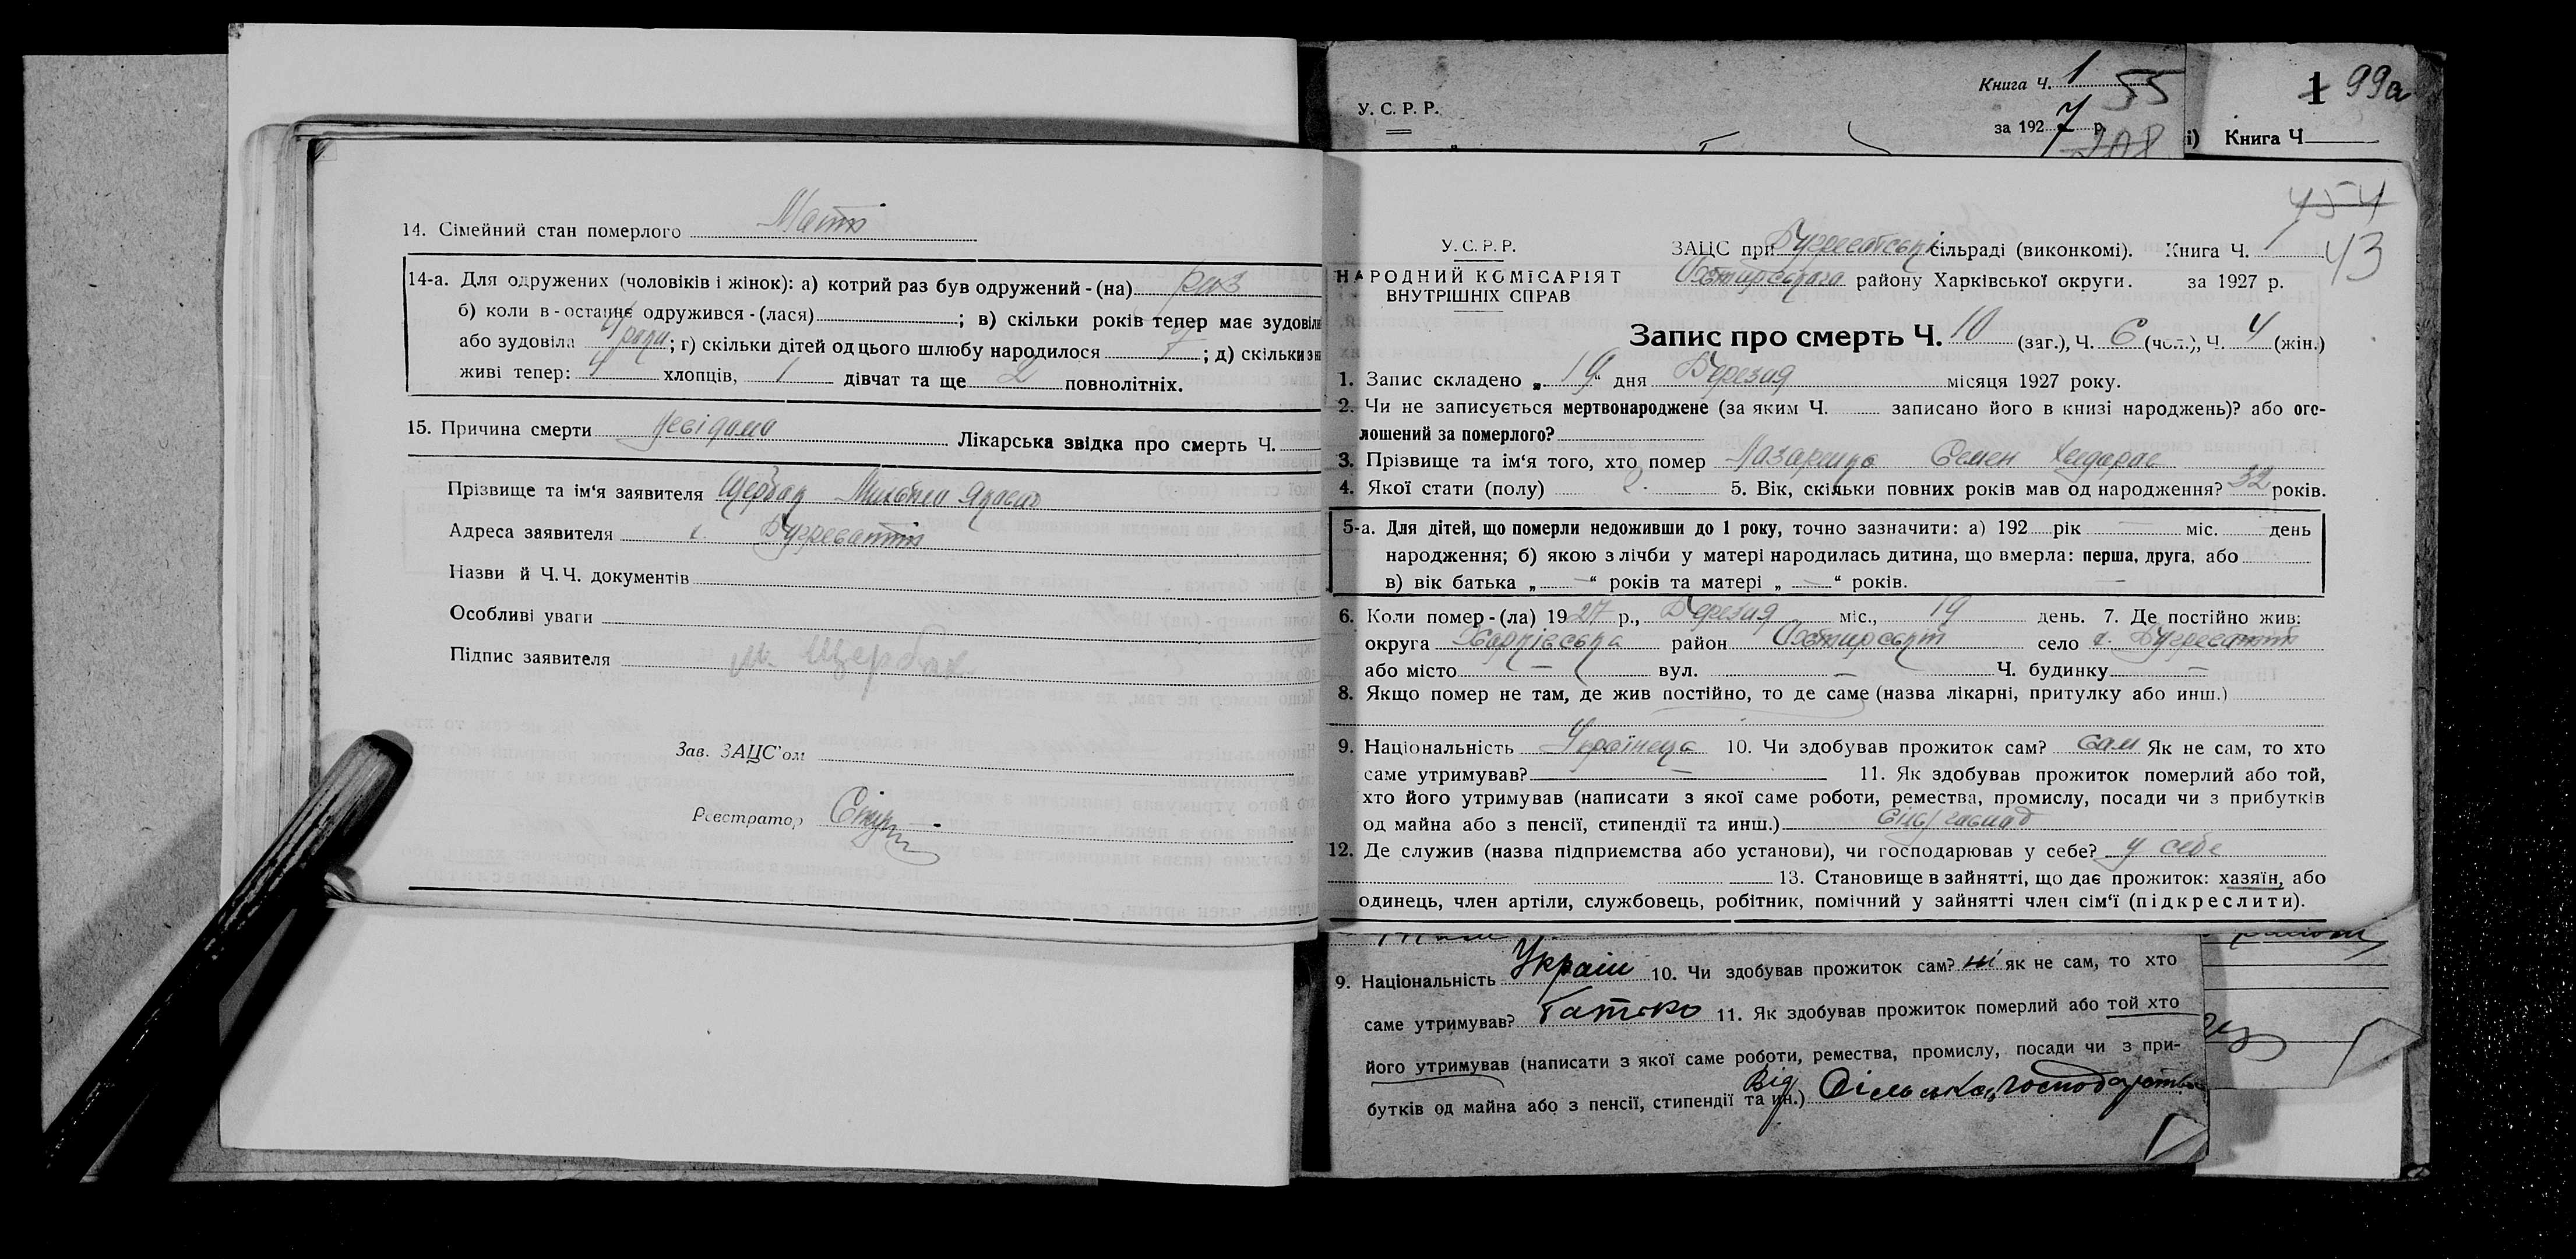 14. Сімейний стан померлого
14-а. Для одружених (чоловіків і жінок): а) котрий раз був одружений-(на) раз
б) коли в-останнє одружився-(лася) ; в) скільки років тепер має зудовіли
або зудовіла 4 роки; г) скільки дітей од цього шлюбу народилося 7 ; д) скільки з
живі тепер: 4 хлопців, 1 дівчат та ще 2 повнолітніх.
15. Причина смерти невідома Лікарська звідка про смерть Ч.
Прізвище та ім'я заявителя Щербак
Адреса заявителя с.
Назви й Ч.Ч. документів
Особливі уваги
Підпис заявителя М. Щербак
Зав. ЗАЦС'ом
Реєстратор
У. С. Р. Р.
Книга Ч. 1 55
за 1927 р.
208
1 99а
і) Книга Ч
454
43
У. С. Р. Р.
НАРОДНИЙ КОМІСАРІЯТ
ВНУТРІШНІХ СПРАВ
ЗАЦС при сільраді (виконкомі). Книга Ч. 1
району Харківської округи. за 1927 р.
Запис про смерть Ч. 10 (заг.), Ч. 6 (чол.), Ч. 4 (жін.)
1. Запис складено „ 19 “ дня Березня місяця 1927 року.
2. Чи не записується мертвонароджене (за яким Ч. записано його в книзі народжень)? або ого-
лошений за померлого?
3. Прізвище та ім'я того, хто помер Семен
4. Якої стати (полу) 5. Вік, скільки повних років мав од народження? 32 років.
5-а. Для дітей, що померли недоживши до 1 року, точно зазначити: а) 192 рік — міс. день
народження; б) якою з лічби у матері народилась дитина, що вмерла: перша, друга, або
в) вік батька „ — “ років та матері „ — “ років.
6. Коли помер-(ла) 1927 р., Березня міс., 19 день. 7. Де постійно жив:
округа Харківська район село с.
або місто — вул. — Ч. будинку —
8. Якщо помер не там, де жив постійно, то де саме (назва лікарні, притулку або инш.)
9. Національність 10. Чи здобував прожиток сам? Сам Як не сам, то хто
саме утримував? — 11. Як здобував прожиток померлий або той,
хто його утримував (написати з якої саме роботи, ремества, промислу, посади чи з прибутків
од майна або з пенсії, стипендії та инш.)
12. Де служив (назва підприємства або установи), чи господарював у себе? у себе
13. Становище в зайнятті, що дає прожиток: хазяїн, або
одинець, член артіли, службовець, робітник, помічний у зайнятті член сім'ї (підкреслити).
9. Національність Україн 10. Чи здобував прожиток сам? ні як не сам, то хто
саме утримував? Батько 11. Як здобував прожиток померлий або той хто
його утримував (написати з якої саме роботи, ремества, промислу, посади чи з при-
бутків од майна або з пенсії, стипендії та ин.) Від сільська господарства